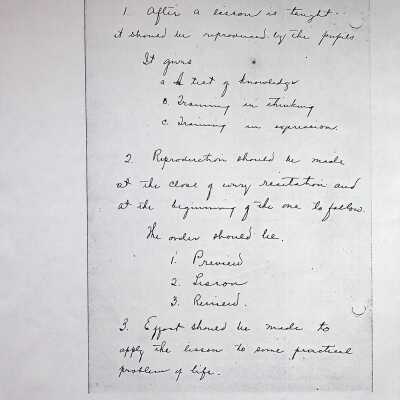 1. After a lesson is taught
it should be reproduced by the pupils
It gives
a. A test of knowledge
B. Training in thinking
C. Training in expression.
2. Reproduction should be made
at the close of every recitation and
at the beginning of the one to follow.
The order should be.
1. Preview
2. Lesson
3. Review.
3. Effort should be made to
apply the lesson to some practical
problem of life.